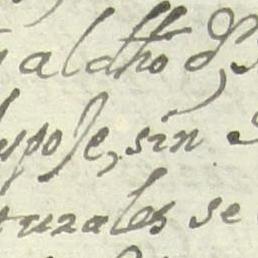 al dho d
upose, sin
turales se